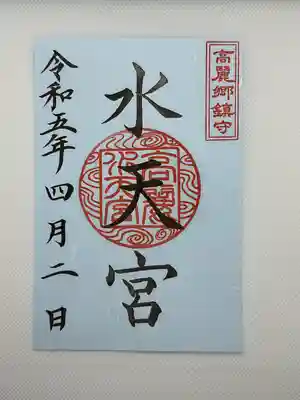 高麗郷鎮守
水天宮
高麗
水天宮
令和五年四月二日